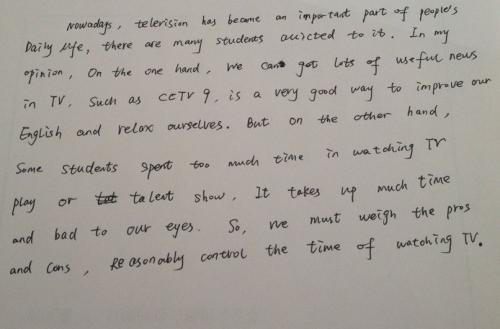 Nowadays, television has became an important part of people's
Daily life, there are many students auicted to it. In my
opinion, On the one hand, we can got lots of useful news
in TV. Such as CCTV 9, is a very good way to improve our
English and relax ourselves. But on the other hand,
Some students spent too much time in watching TV
play or talent show, It takes up much time
and bad to our eyes. So, we must weigh the pros
and cons, Reasonably control the time of watching TV.